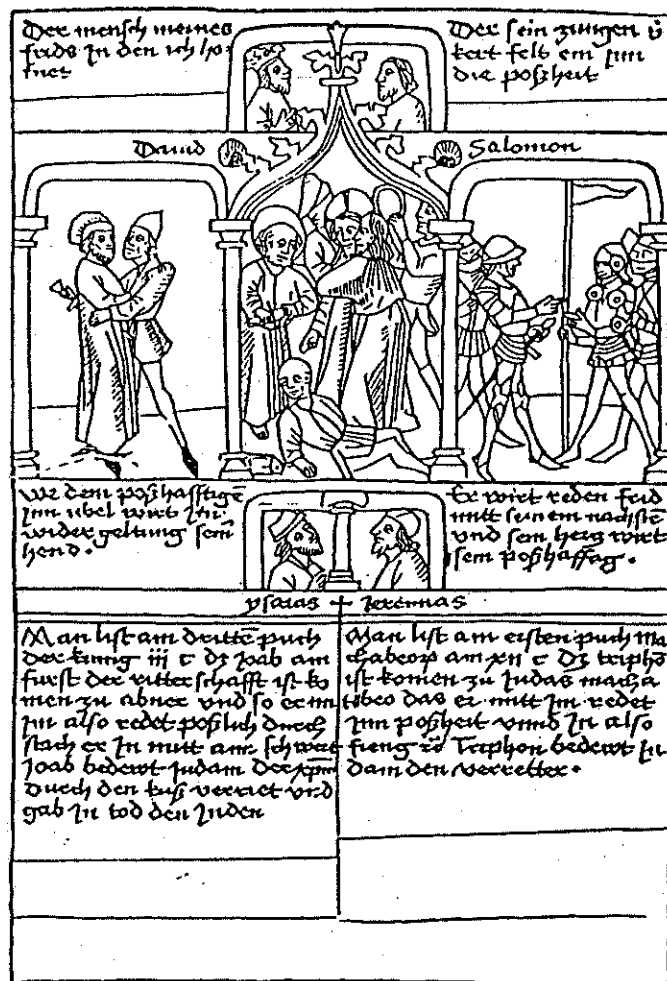 Der mensch meines
frids in den ich ho
net
Der sein zungen v̈
kert felt ein inn
die poßheit
Dauid
Salomon
we dem poßhafftigē
inn ubel wirt im
wider geltung sein
hend.
Er wirt reden frid
mitt seinem nachstē
vnd sein herg wirt
sem poßhaffag.
ysaias + Jeremias
Man list am drittē puch
der kunig iii c dz Joab am
furst der ritterschafft ist ko
men zu abner vnd so er im
im also redet poßlich durch
stach er In mitt am schwert
Joab bedewt Judam der xpm
durch den kuß verriet vnd
gab in tod den Juden
Man list am ersten puch ma
chabeoꝝ am xii c dz triphō
ist komen zu Judas macha
tibeo das er mitt im redet
inn poßheit vnnd in also
fieng Triphon bedewt Ju
dam den verretter.